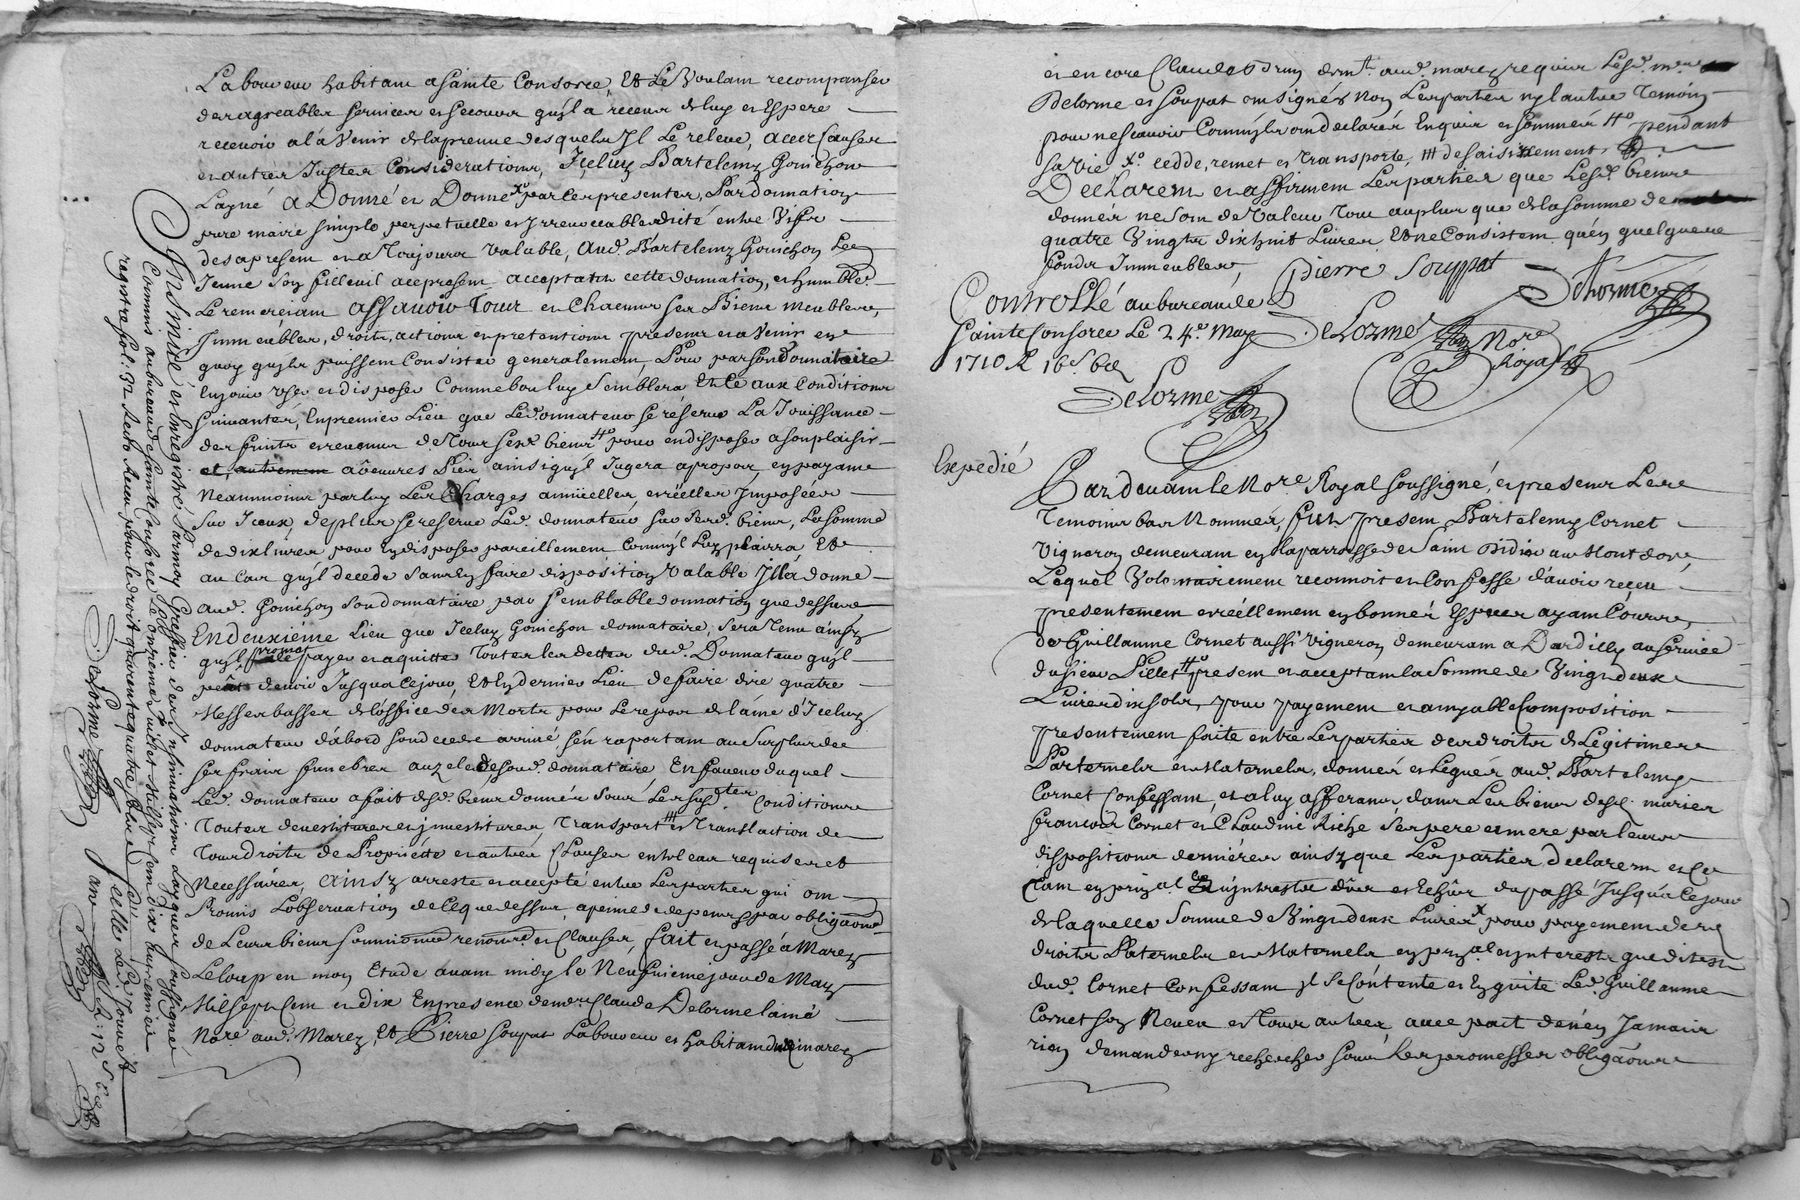 Laboureur habitant a Sainte Consorce, Et Le Voulant recompanser
des agreables services et secours qu'yl a receus de luy et Espere
recevoir a la venir de la preuve desquels Il Le releve, avec Causes
et autres Justes Considerations, Iceluy Bartelemy Gonichon
Layné A Donné et Donne par Ces presentes, Par donnation
pure mavie simple perpetuelle et Irrevocable dité entre Vifs
des apresent et a Toujours valable, Aud. Bartelemy Gonichon Le
Jeune Son filleuil acepresent acceptant cette donnation, et humblet.
Le remerciant Assavoir Tous et Chacuns ses Biens Meubles,
Immeubles, droits, actions et pretentions presents et a Venir en
quoy qu'yls puissent Consister generalement, Pour par son donnataire
Enjouir user et disposer Comme bon luy Semblera Et Ce aux Conditions
Suivantes, En premier Lieu que Led. donnateur Se reserve La Jouissance
des fruits et revenus de Tous sesd. biens pour en disposer a son plaisir
et autrement a oeuvres Pies ainsi qu'yl Jugera apropos, en payant
Neanmoins par luy Les Charges annüelles, et réelles Imposées
Sur Iceux, de plus se reserve Led. donnateur sur Sesd. biens, La somme
de dix livres pour En disposer pareillement Comm'yl Luy plairra, Et
au Cas qu'yl decede Sans En faire disposition Valable Il La donne
aud. Gonichon Son donnataire par Semblable donnation que dessus
En deuxiéme Lieu que Iceluy Gonichon donnataire, Sera Tenu ainsy
qu'yl promet payer et aquitter Toutes les dettes dud. Donnateur qu'yl
peut devoir Jusqua Ce jour, Et En dernier Lieu de faire dire quatre
Messes basses de l'office des Morts pour Le repos de l'ame d'Iceluy
donnateur d'abord son decede arrivé, s'en raportant au Surplus de
ses frais funebres au zele de Sond. donnataire, En faveur duquel
Led. donnateur a fait desd. biens donnés Sous Les susd.tes Conditions
Toutes devestitures et investitures, Transport et Translaction de
Tous droits de Proprieté et autres Clauses en tel cas requises et
Necessaires, Ainsy arresté et accepté entre Les parties qui ont
Promis L'observation de Ce que dessus, a peine de depens par obligaôns
de Leurs biens Soumissions renonc.on et Clauses, fait et passé a Marcy
Le loup en mon Etude avant midy le Neufvieme jour de May
Mil Sept Cent et dix En presence de mre. Claude Delorme lainé
Nore. aud. Marcy, Et Pierre Soupat Laboureur et habitant dud. marcy
Insinué et Enregistré Par moy Greffier des Insinations Laïques soussigné
Commis au bureau de Sainte Consorce Le onzieme Juillet Mil Sept Cent dix
registre fol: 32 Recto Receu pour le droit quarente quatre sols
Delorme
et encore Claude Brun demt. aud. marcy requis Lesd. mre
Delorme et Soupat ont signé & Non Les parties ny l'autre Temoin
pour ne Scavoir Comm'yls ont declaré Enquis et Sommés # pendant
Sa Vie X cedde, remet et Transporte, # desaisissement
Declarent et affirment Les parties que Lesd. biens
donnés ne Sont de Valeur Tout au plus que de la Somme de
quatre Vingts dixhuit Livres Et ne Consistent qu'en quelques
fonds Immeubles,
Pierre Souppat
Delhorme
Controllé au bureau de
Sainte Consorce Le 24e. May
1710 R 16s 6d
DeLorme
Nore
Royal
DeLorme
Expedié
Pardevant le Nore. Royal Soussigné, et presens Les
Temoins bas Nommés, fut present Bartelemy Cornet
Vigneron demeurant en la parroisse de Saint Didier au Mont dor,
Lequel Volontairement reconnoit et Confesse d'avoir reçu
presentement et réellement en bonnes Especes ayant Cours,
de Guillaume Cornet aussi Vigneron, demeurant a Dardilly au Service
du sieur Pillet # present et acceptant la Somme de Vingt deux
Livres dix sols, pour payement et amyable Composition
presentement faite entre Les parties des droits de Legitimes
Paternels et Maternels, donnés et Legués aud. Bartelemy
Cornet Confessant, et a luy afferants dans Les biens desd. mariés
francois Cornet et Claudine Riche Ses pere et mere par leurs
dispositions dernieres ainsy que Les parties declarent et Ce
Tant en prinal. qu'yntrestz dûs et Echûs du passé Jusqu'a Ce jour
de laquelle Somme de Vingt deux Livres X pour payement desd.
droits Paternels et Maternels en prinal. et ynterestz que ditest
dud. Cornet Confessant yl Se Contente et En quite Led. Guillaume
Cornet Son Neveu et Tous autres avec pact de n'en Jamais
rien demander ny rechercher Sous Les promesses obligaôns